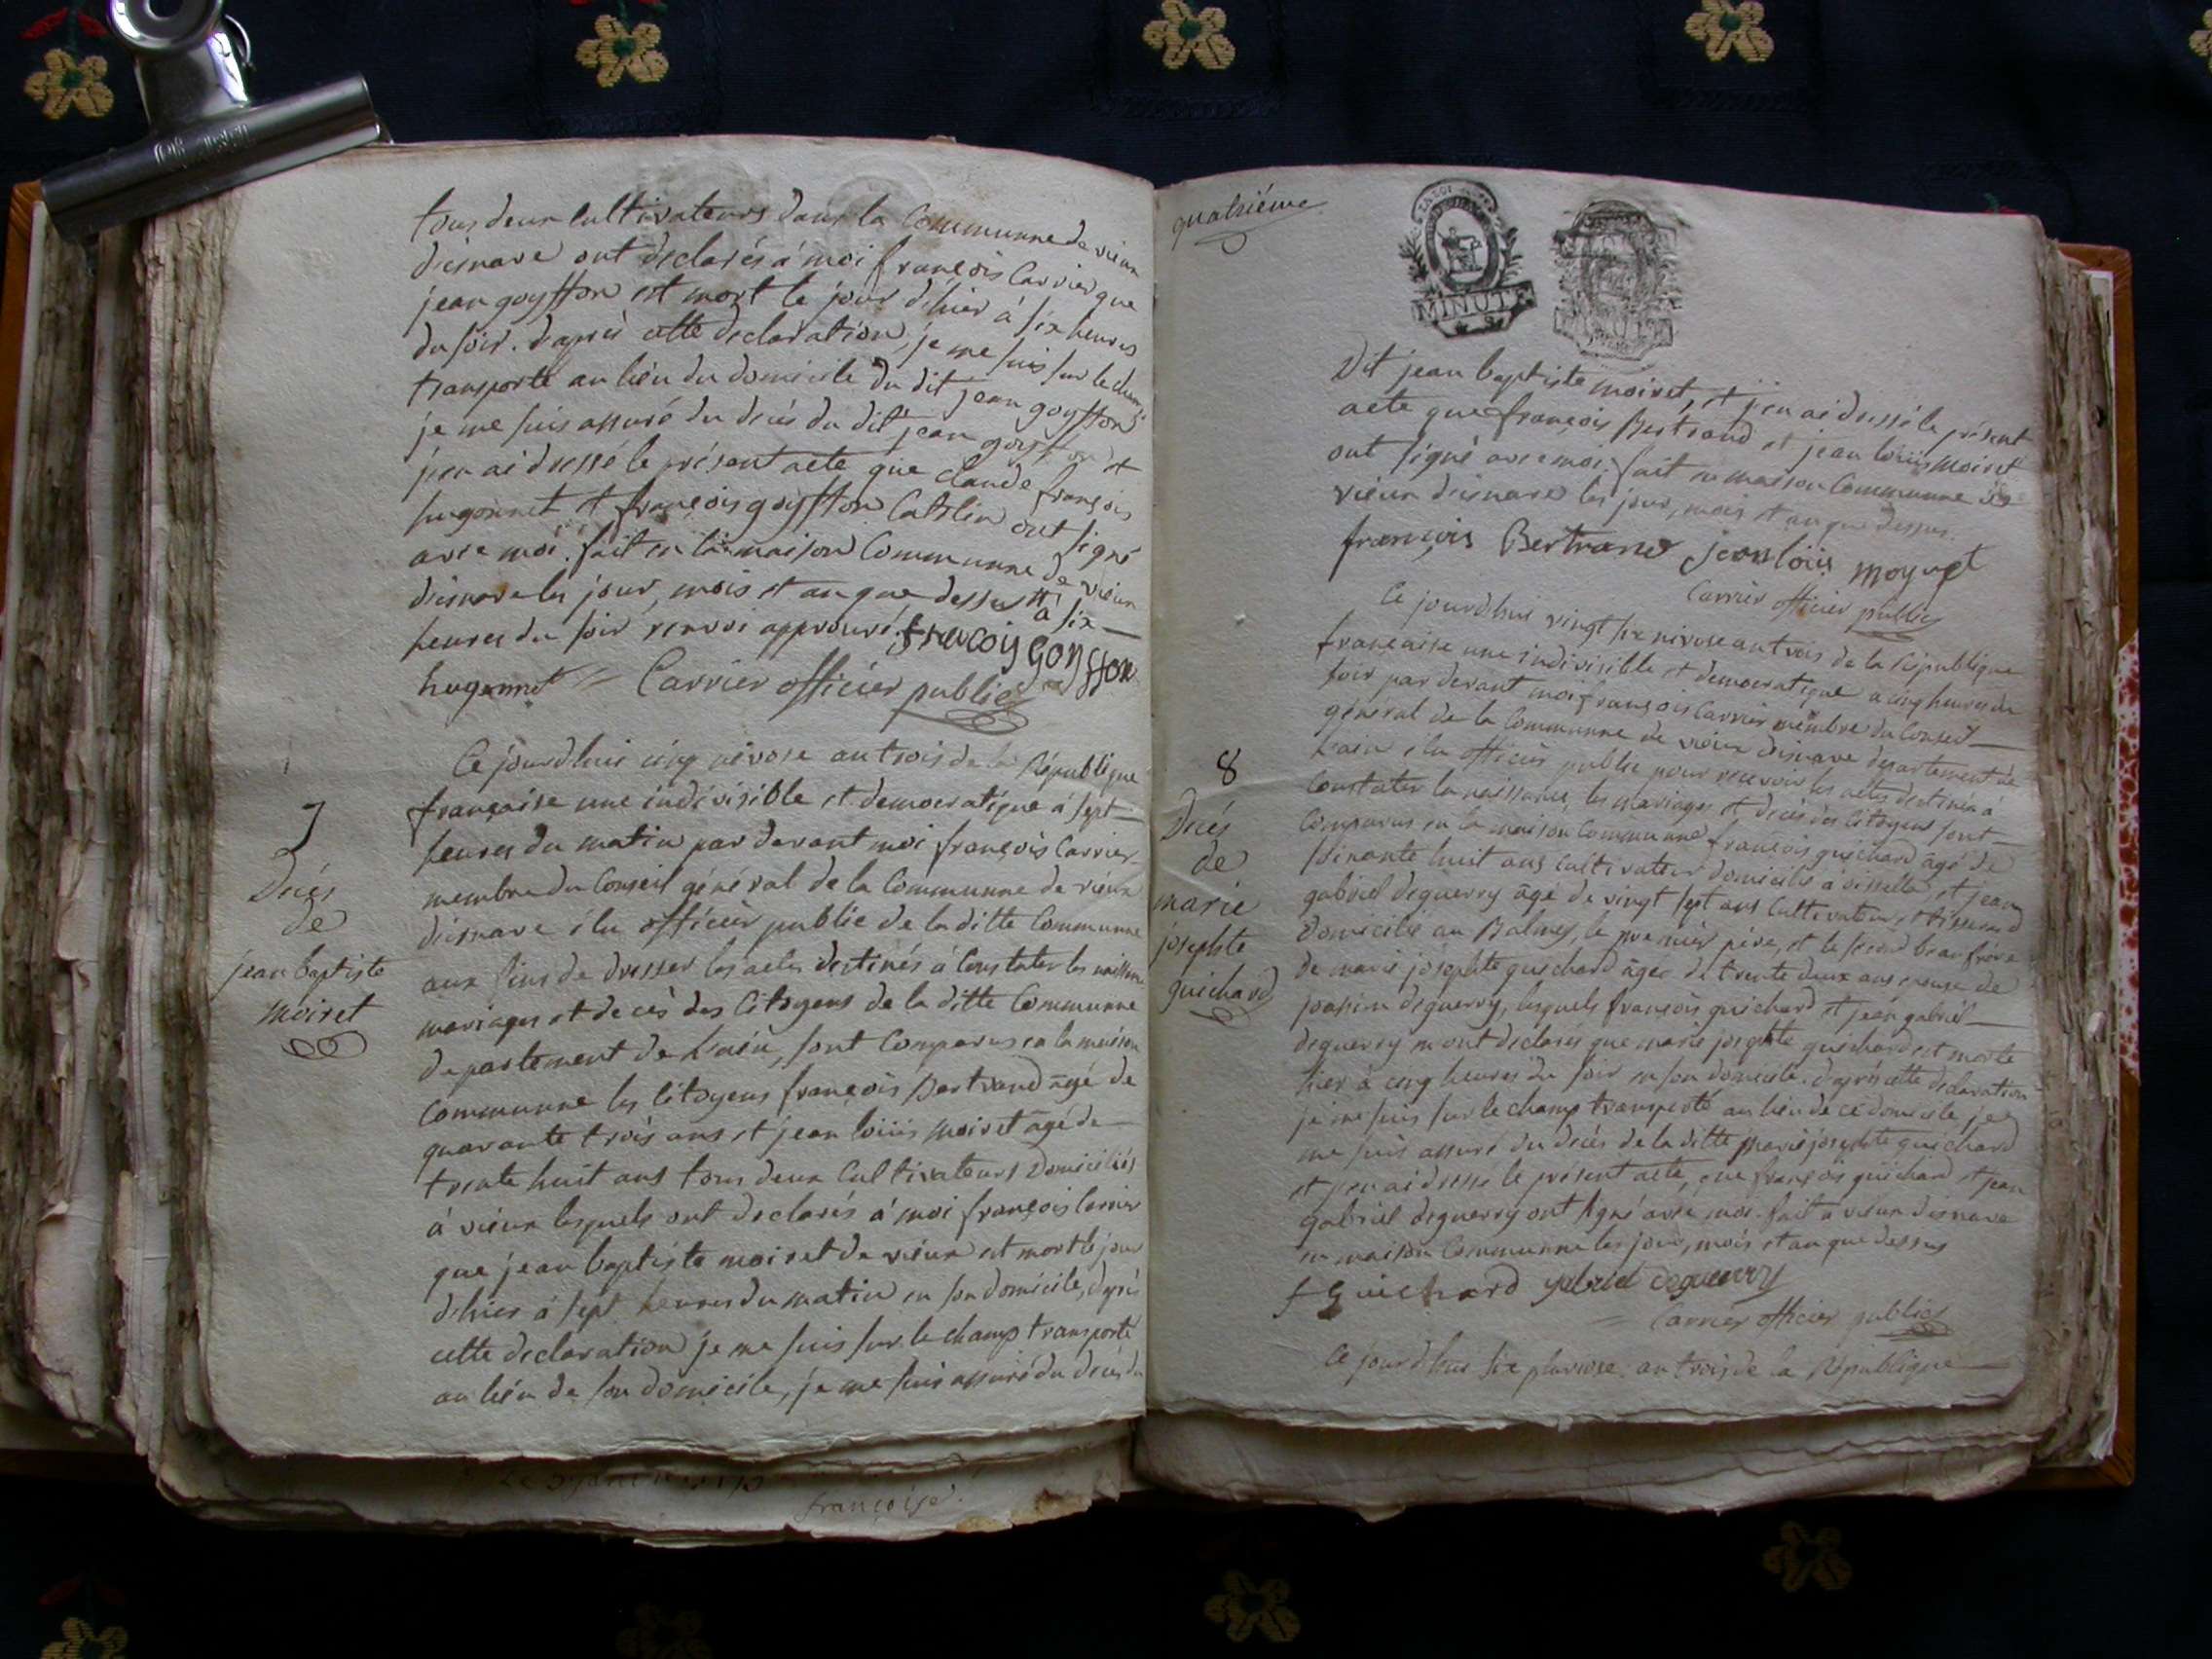 tous deux cultivateurs dans la Communne de vieux
disnave ont declarés á moi françois Carrier que
jean goyffon est mort le jour d'hier à six heures
du soir. d'après cette declaration, je me suis sur le champ
transporté au lieu du domicile du dit jean goyffon
je me suis assuré du decès du dit jean goyffon et
j'en ai dressé le présent acte que claude françois
hugonnet et françois goyffon Catelin ont signé
avec moi. fait en la maison Communne de vieux
disnave les jour, mois et an que dessus à six
heures du soir renvoi approuvé. francois goyffon
hugonnet Carrier officier public
Ce jourd'huis cinq nivose an trois de la République
7
française une indivisible et democratique á sept
heures du matin par devant moi françois Carrier
Décés
membre du Conseil général de la Communne de vieux
de
disnave élu officier public de la ditte Communne
jean baptiste
aux fins de dresser les actes destinés á Constater les naissances
moiret
mariages et decès des Citoyens de la ditte Communne
departement de Lain, sont Comparus en la maison
Communne les Citoyens françois Bertrand âgé de
quarante trois ans et jean loüis moiret âgé de
trente huit ans tous deux Cultivateurs Domiciliés
á vieux lesquels ont declarés á moi françois Carrier
que jean baptiste moiret de vieux est mort le jour
d'hier á sept heures du matin en son domicile, d'après
cette declaration je me suis sur le champ transporté
au lieu de son domicile, je me suis assuré du decès du
françoise.
quatriéme
MINUTE
Dit jean baptiste moiret, et j'en ai dressé le présent
acte que françois Bertrand et jean loüis moiret
ont signé avec moi. fait en maison Communne de
vieux disnave les jour, mois et an que dessus.
françois Bertrand jean loüis moyret
Carrier officier public
Ce jourd'hui vingt six nivose an trois de la République
française une indivisible et democratique a cinq heures du
soir par devant moi françois Carrier membre du Conseil
général de la Communne de vieux disnave departement de
8
Lain élu officier public pour recevoir les actes destinés à
Constater les naissances, les mariages et decès des Citoyens sont
Décés
Comparus en la maison Communne françois guichard âgé de
de
soixante huit ans cultivateur domicilié à et jean
marie
gabriel deguerry âgé de vingt sept ans Cultivateur et tisserand
josephte
domicilié au Balmey, le premier père, et le second beau frère
guichard
de marie josephte guichard âgée de trente deux ans epouse de
deguerry, lesquels françois guichard et jean gabriel
deguerry m'ont declarés que marie josephte guichard est morte
hier à cinq heures du soir en son domicile. d'après cette declaration
je me suis sur le champ transporté au lieu de ce domicile, je
me suis assuré du decès de la ditte marie josephte guichard
et j'en ai dressé le présent acte, que françois guichard et jean
gabriel deguerry ont signé avec moi. fait a vieux disnave
en maison Communne les jour, mois et an que dessus
f guichard gabriel deguerry
Carrier officier public
Ce jourd'hui six pluviose an trois de la République